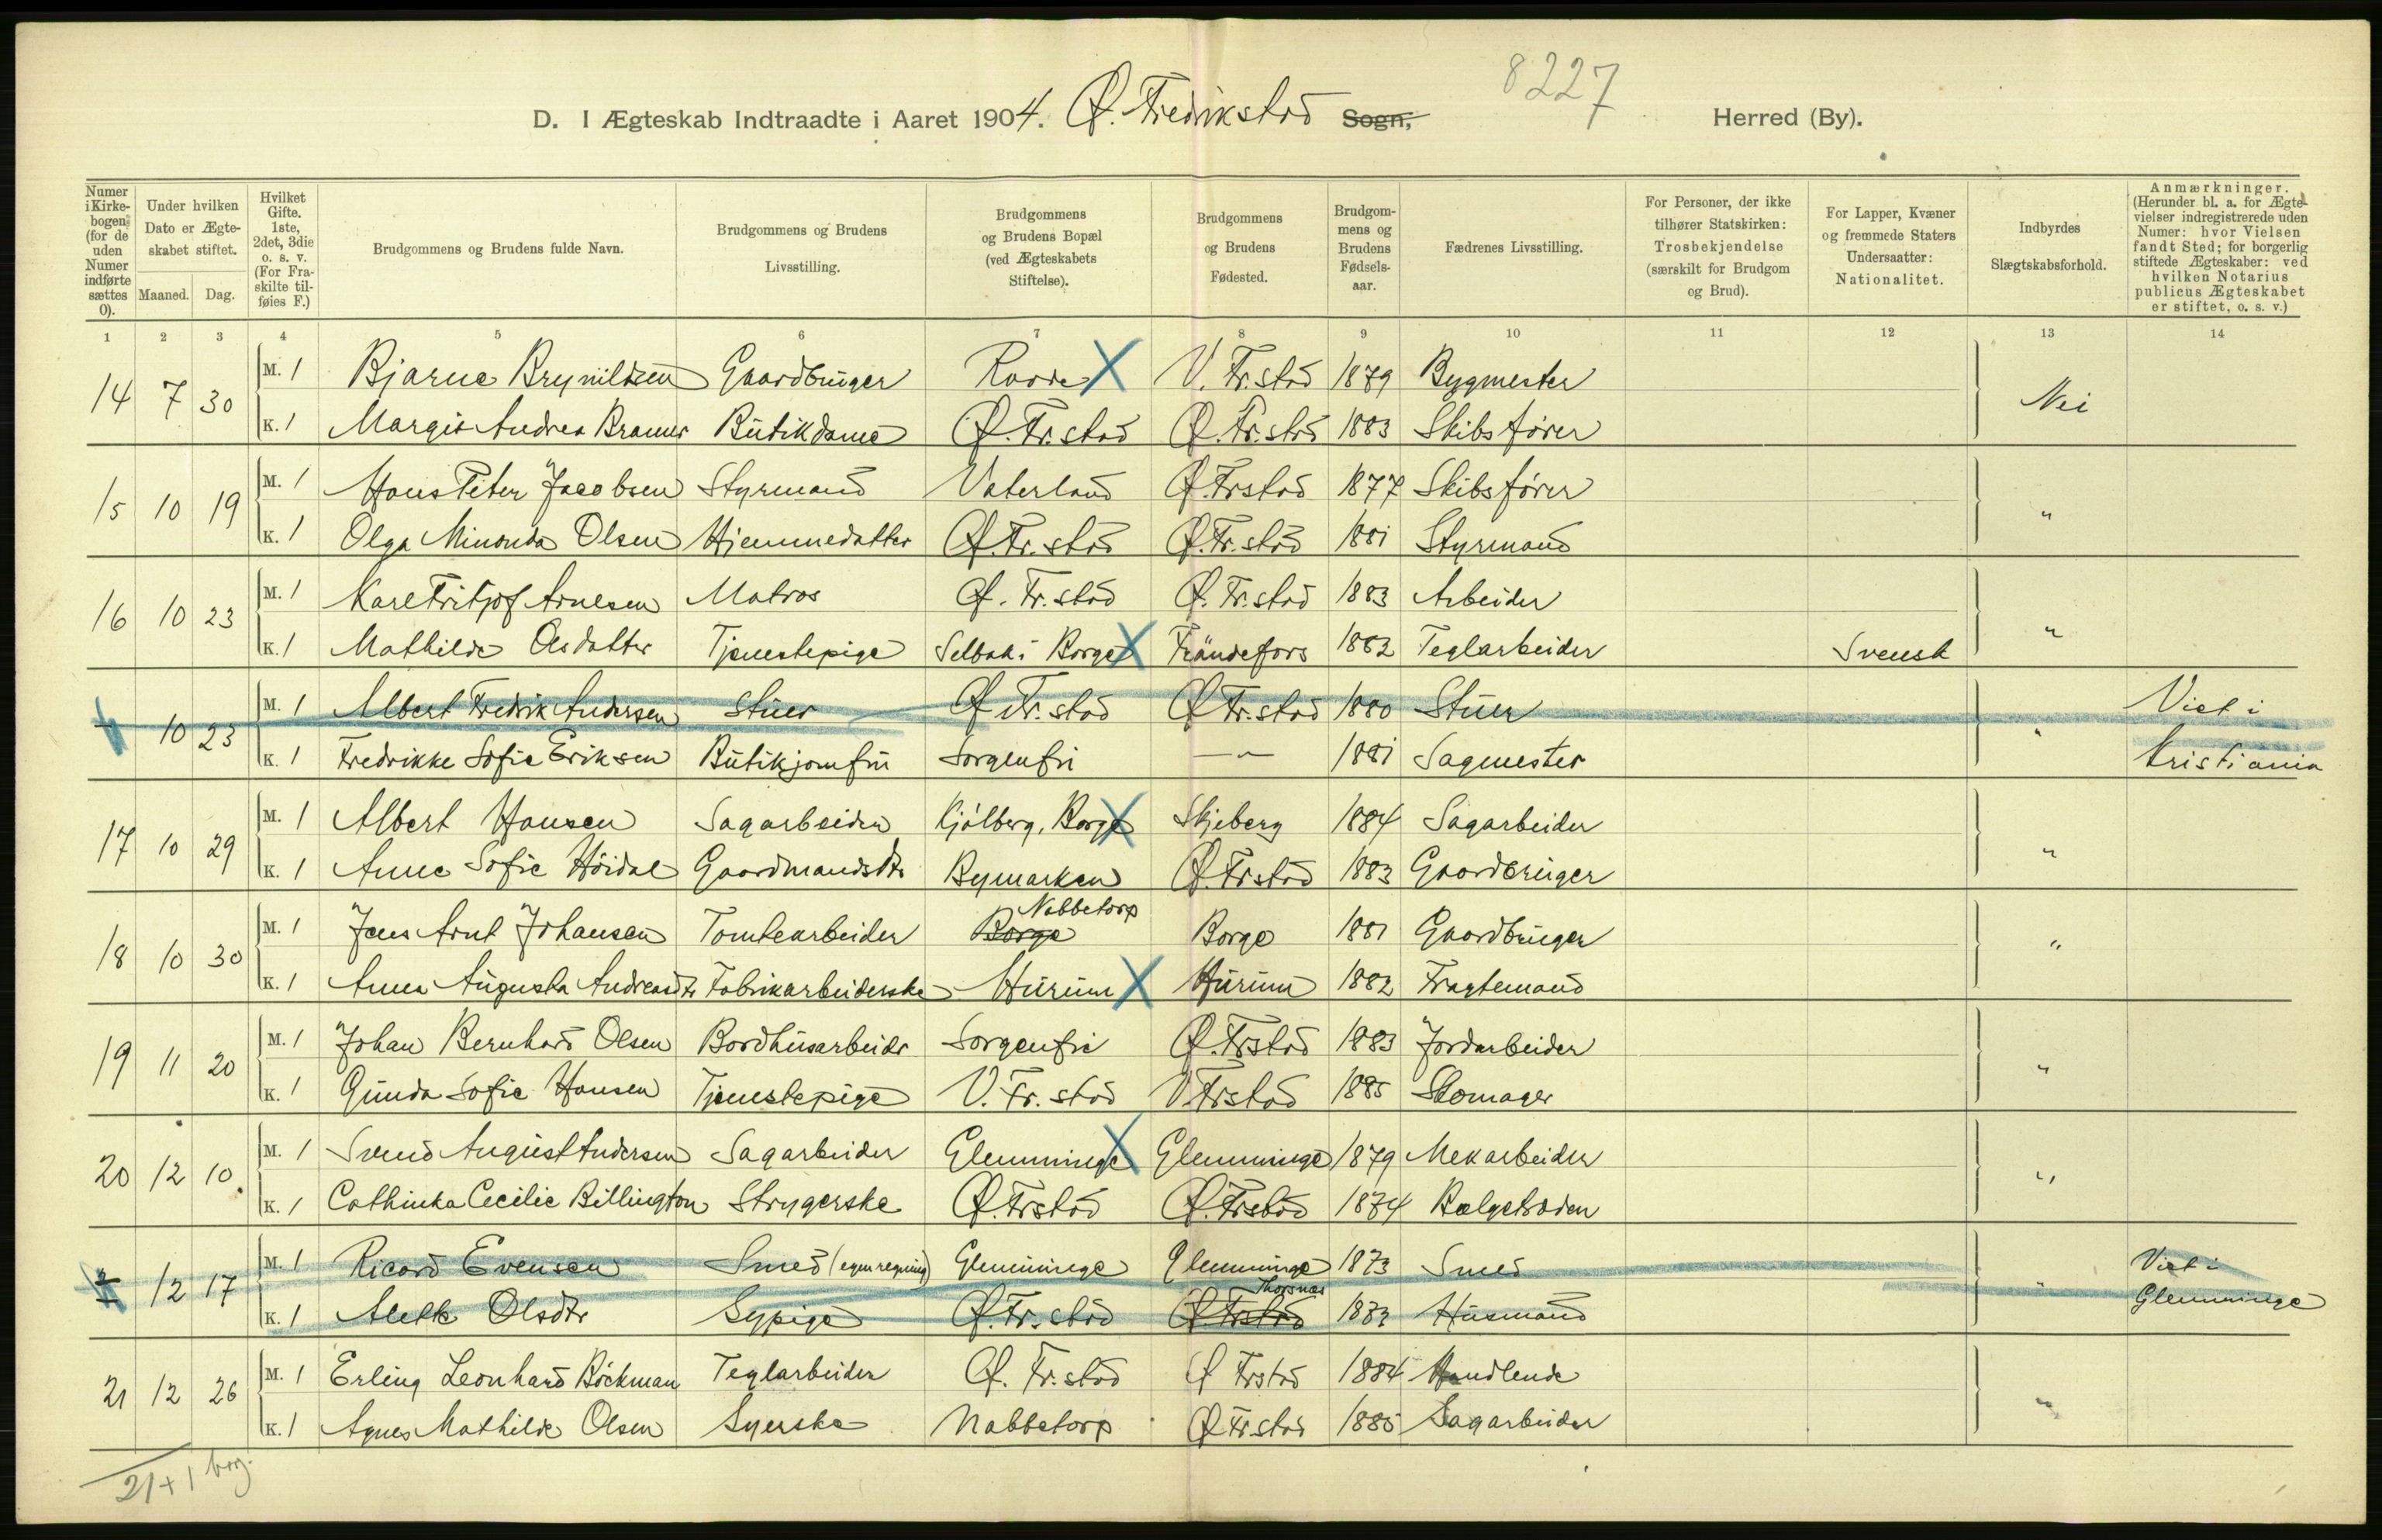 8227
D. I Ægteskab Indtraadte i Aaret 1904. Ø. Fredrikstad Sogn, Herred (By).
Numer i Kirke-bogen (for de uden Numer indførte sættes 0).
Under hvilken Dato er Ægte-skabet stiftet.
Maaned. Dag.
Hvilket Gifte. 1ste, 2det, 3die o. s. v. (For Fra-skilte til-føies F.)
Brudgommens og Brudens fulde Navn.
Brudgommens og Brudens Livsstilling.
Brudgommens og Brudens Bopæl (ved Ægteskabets Stiftelse).
Brudgommens og Brudens Fødested.
Brudgom-mens og Brudens Fødsels-aar.
Fædrenes Livsstilling.
For Personer, der ikke tilhører Statskirken: Trosbekjendelse (særskilt for Brudgom og Brud).
For Lapper, Kvæner og fremmede Staters Undersaatter: Nationalitet.
Indbyrdes Slægtskabsforhold.
Anmærkninger. (Herunder bl. a. for Ægte-vielser indregistrerede uden Numer: hvor Vielsen fandt Sted; for borgerlig stiftede Ægteskaber: ved hvilken Notarius publicus Ægteskabet er stiftet, o. s. v.)
1 2 3 4 5 6 7 8 9 10 11 12 13 14
14 7 30 M. 1 Bjarne Brynildsen Gaardbruger Raade V. Fr.stad 1879 Bygmester Nei
K. 1 Margit Andrea Butikdame Ø. Fr.stad Ø. Fr.stad 1883 Skibsfører
15 10 19 M. 1 Hans Peter Jacobsen Styrmand Vaterland Ø. Frstad 1877 Skibsfører "
K. 1 Olga Minanda Olsen Hjemmedatter Ø. Fr.stad Ø. Fr.stad 1881 Styrmand
16 10 23 M. 1 Karl Fritjof Arnesen Matros Ø. Fr.stad Ø. Fr.stad 1883 Arbeider "
K. 1 Mathilde Olsdatter Tjenestepige Selbak i Borge Frändefors 1882 Teglarbeider Svensk
10 23 M. 1 Albert Fredrik Andersen Stuer Ø. Fr.stad Ø Fr.stad 1880 Stuer " Viet i
K. 1 Fredrikke Sofie Eriksen Butikjomfru Sorgenfri — " — 1881 Sagmester Kristiania
17 10 29 M. 1 Albert Hansen Sagarbeider Kjølberg, Borge Skjeberg 1884 Sagarbeider "
K. 1 Anne Sofie Höidal Gaardmandsdtr Bymarken Ø. Frstad 1883 Gaardbruger
Nabbetorp
18 10 30 M. 1 Jens Arnt Johansen Tomtearbeider Borge Borge 1881 Gaardbruger "
K. 1 Anna Augusta Andreasdtr Fabrikarbeiderske Hurum Hurum 1882 Fragtemand
19 11 20 M. 1 Johan Bernhard Olsen Bordhusarbeidr Sorgenfri Ø. Frstad 1883 Jordarbeider "
K. 1 Gunda Sofie Hansen Tjenestepige V. Fr. stad V. Frstad 1885 Skomager
20 12 10 M. 1 Svend August Andersen Sagarbeider Glemminge Glemminge 1879 Mekarbeider "
K. 1 Cathinka Cecilie Billington Strygerske Ø. Frstad Ø. Frstad 1874 Bælgetræder
12 17 M. 1 Ricard Evensen Smed (egen regning) Glemminge Glemminge 1873 Smed " Viet i
Thorsnæs
K. 1 Alette Olsdtr Sypige Ø. Fr. stad Ø. Frstad 1883 Husmand Glemminge
21 12 26 M. 1 Erling Leonhard Böckman Teglarbeider Ø. Fr.stad Ø Frstad 1884 Handlende "
K. 1 Agnes Mathilde Olsen Syerske Nabbetorp Ø Fr.stad 1885 Sagarbeider
21 + 1 borg.